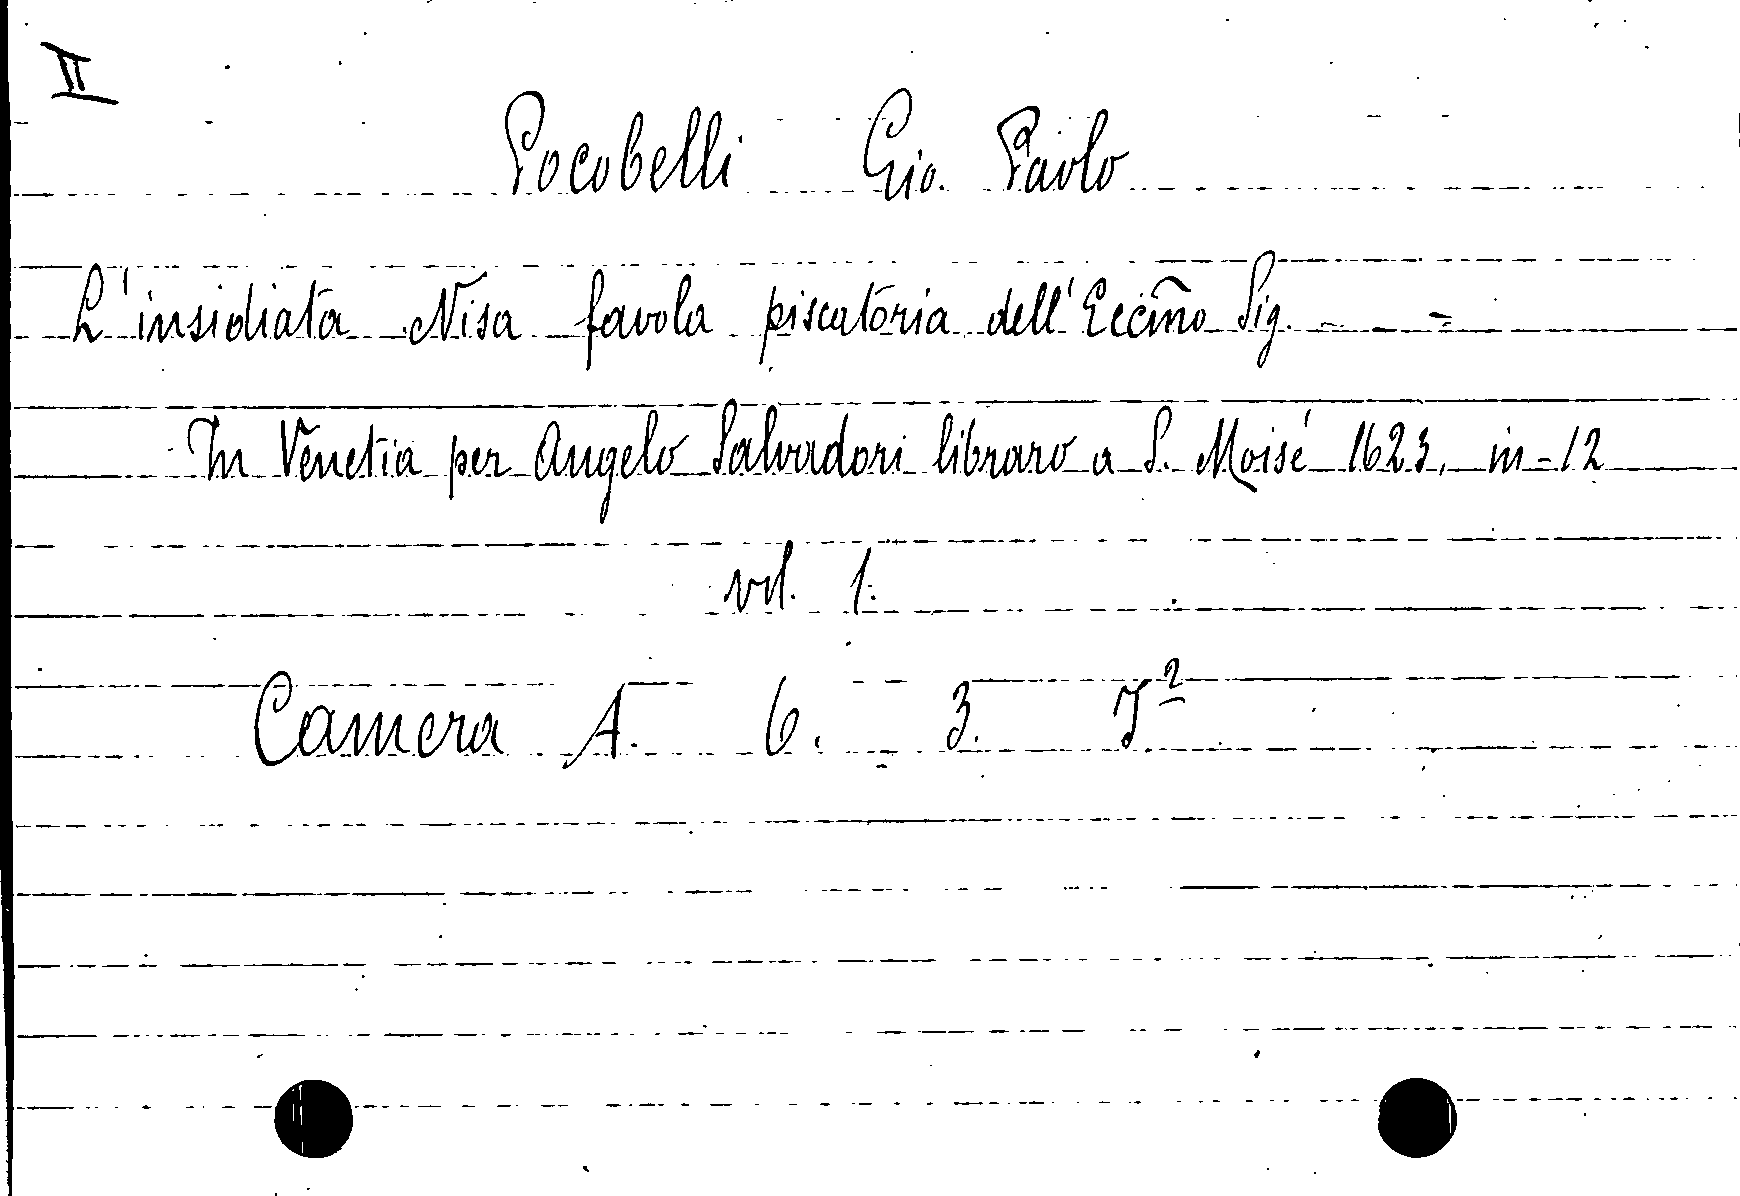 II
Pocobelli Gio. Paolo
L'insidiata Nisa favola piscatoria dell'Eccm̃o Sig. - - =
In Venetia per Angelo Salvadori libraro a S. Moisé 1623. in-12
vol. 1.
Camera A. 6. 3.